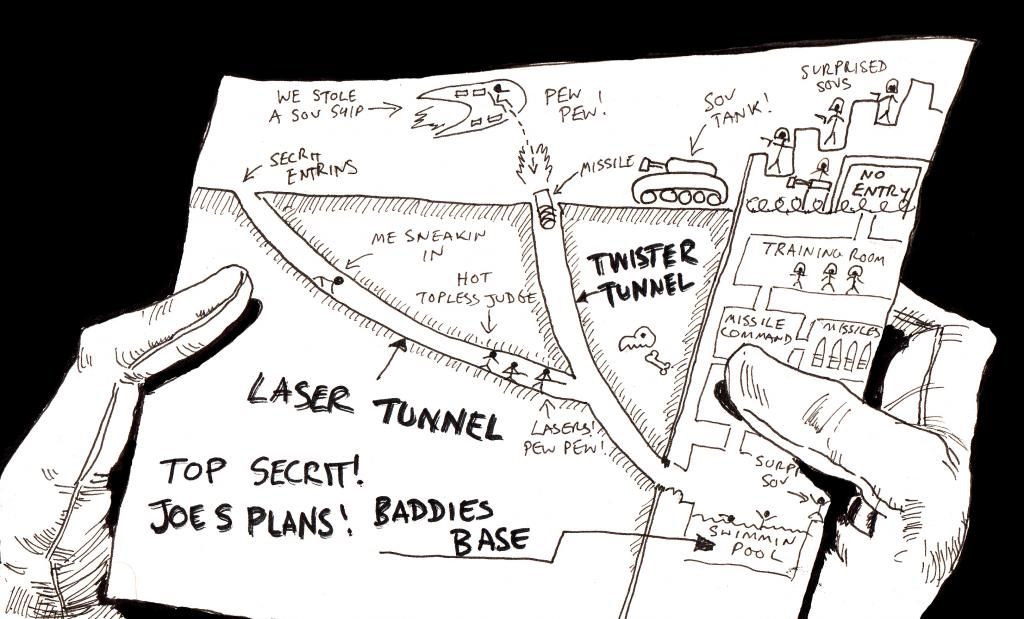 WE STOLE
A SOV SHIP
PEW !
PEW!
SOV
TANK!
SURPRISED
SOVS
SECRIT
ENTRINS
MISSILE
NO
ENTRY
ME SNEAKIN
IN
HOT
TOPLESS JUDGE
TWISTER
TUNNEL
TRAINING ROOM
MISSILE
COMMAND
MISSILES
LASER TUNNEL
LASERS!
PEW PEW!
TOP SECRIT!
JOES PLANS!
BADDIES
BASE
SOV
SWIMMIN
POOL